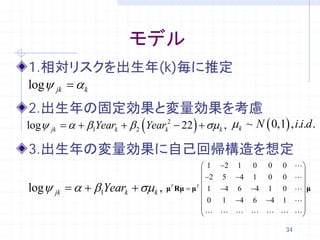 モデル
1.相対リスクを出生年(k)毎に推定
log ψ_jk = α_k
2.出生年の固定効果と変量効果を考慮
log ψ_jk = α + β_1 Year_k + β_2 (Year_k^2 − 22) + σμ_k , μ_k ~ N(0,1), i.i.d.
3.出生年の変量効果に自己回帰構造を想定
log ψ_jk = α + β_1 Year_k + σμ_k , μ^T Rμ = μ^T ( 1 −2 1 0 0 0 ⋯
−2 5 −4 1 0 0 ⋯
1 −4 6 −4 1 0 ⋯
0 1 −4 6 −4 1 ⋯
⋯ ⋯ ⋯ ⋯ ⋯ ⋯ ⋯ ) μ
34